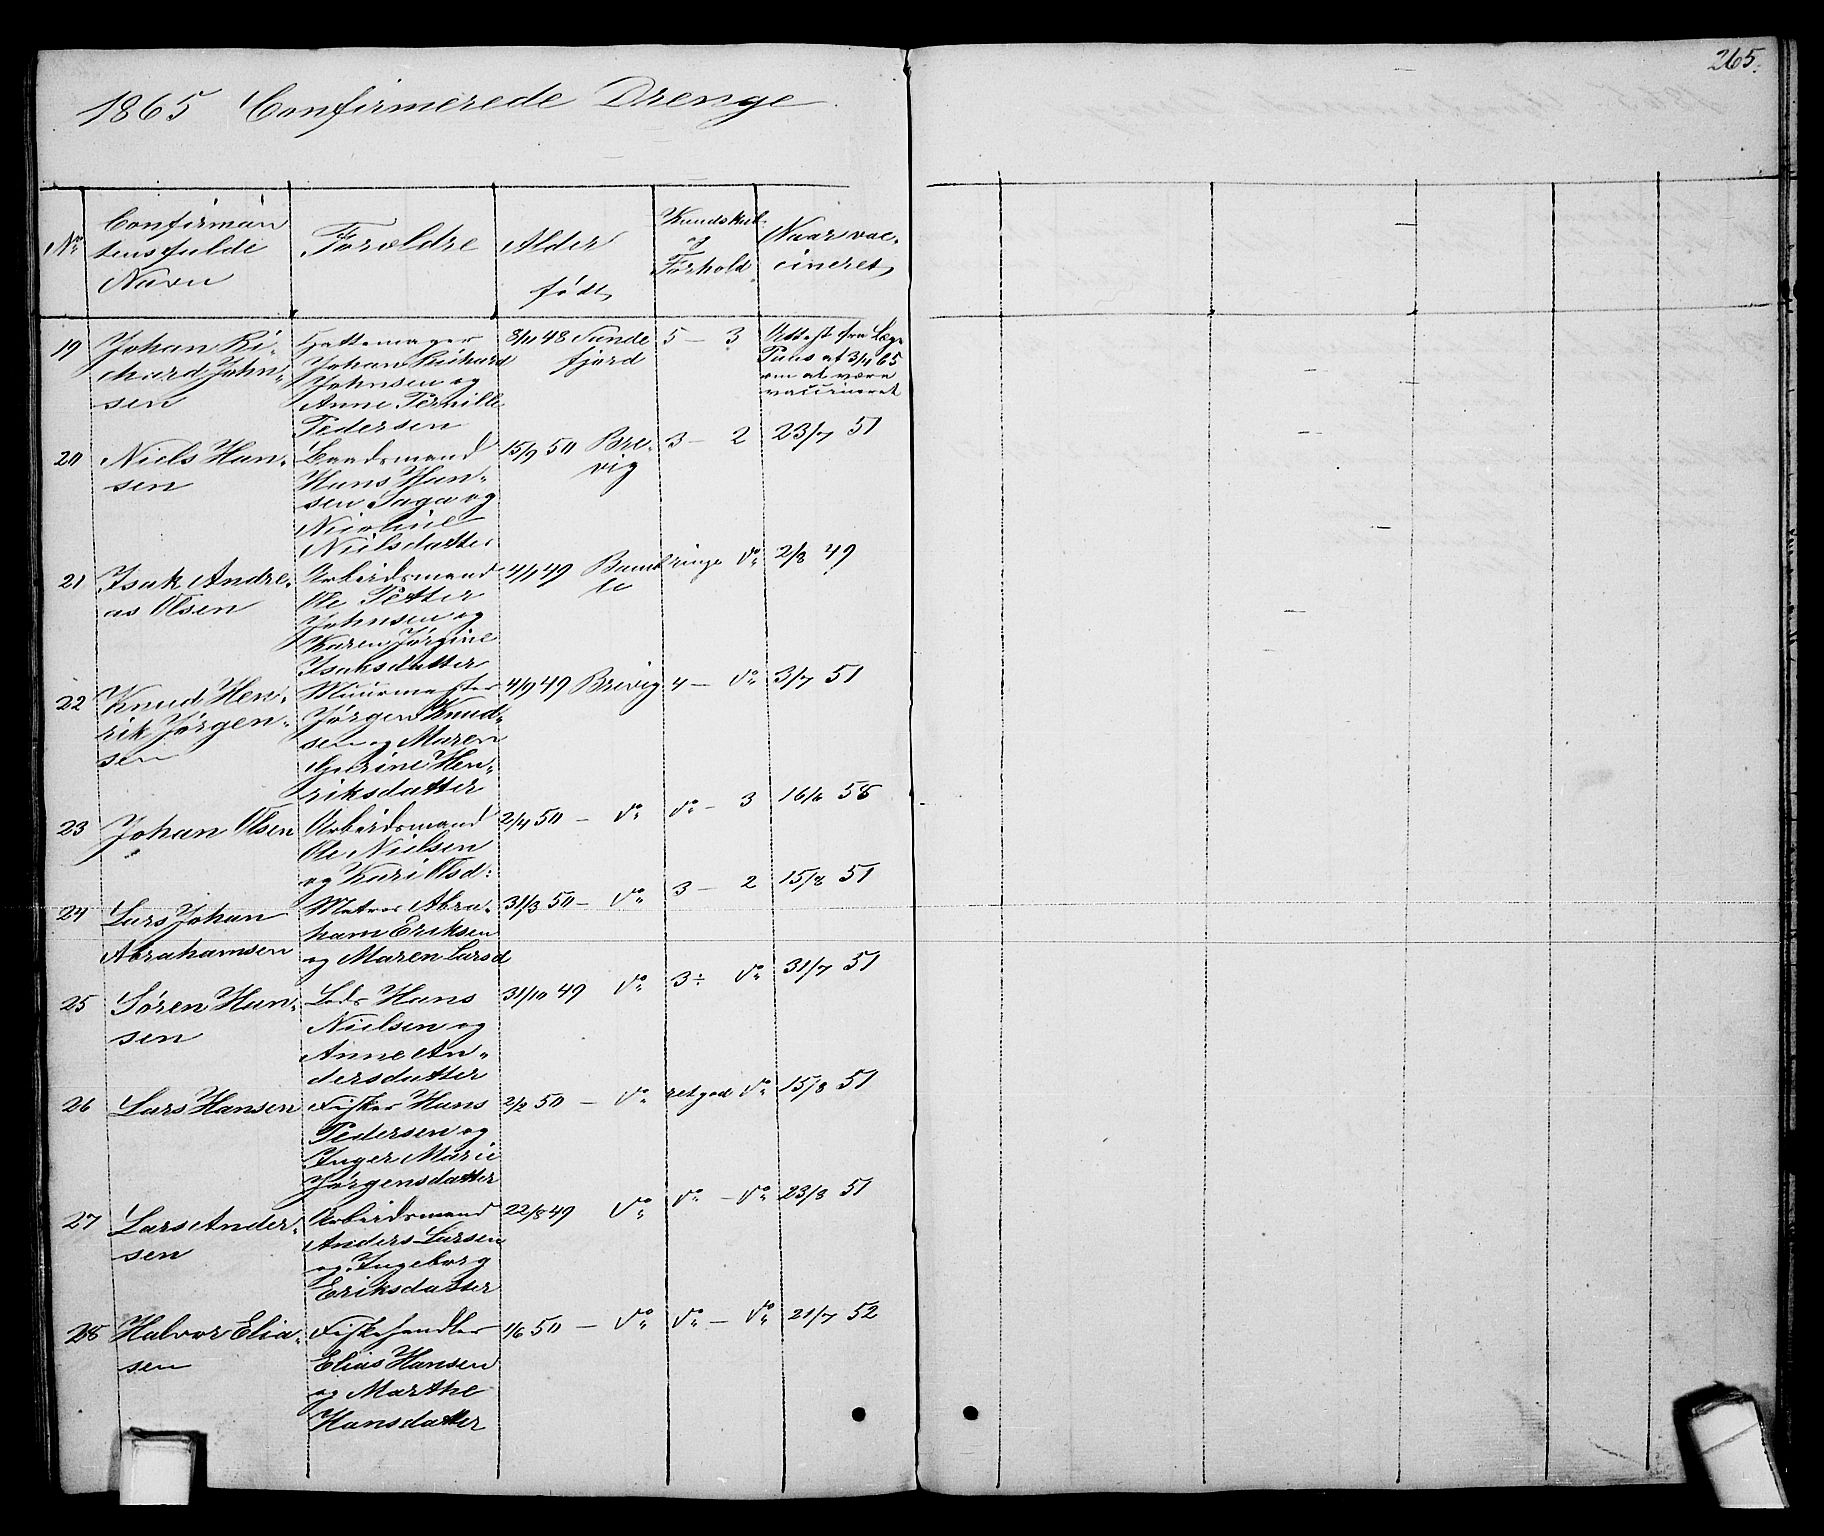 265.
1865 Confirmerede Drenge
No. Confirman tens fulde Navn Forældre Alder født Kundskab og Forhold Naar vac- cineret
19 Johan Ri- chard John- sen Hattemager Johan Richard Johnsen og Anne Pernille Pedersen 8/11 48 Sande fjord 5 — 3 Attest fra Læge Paus af 3/4 65 om at være vaccineret
20 Niels Han- sen Baadsmand Hans Han- sen Saga og Nicoline Nielsdatter 15/9 50 Bre- vig 3 — 2 23/7 51
21 Isak Andre- as Olsen Arbeidsmand Ole Petter Johnsen og Karen Jørgine Isaksdatter 4/1 49 Bamb le ringe do 2/8 49
22 Knud Hen- rik Jørgen- sen Muurmester Jørgen Knud- sen og Maren Hen- riksdatter 4/9 49 Brevig 4 — do 3/7 51
23 Johan Olsen Arbeidsmand Ole Nielsen og Kari Olsd: 2/4 50 — do do — 3 16/6 58
24 Lars Johan Abrahamsen Matros Abra- ham Eriksen og Maren Larsd 31/3 50 — do 3 — 2 15/8 51
25 Søren Han- sen Lods Hans Nielsen og Anne An- dersdatter 31/10 49 do 3÷ do 31/7 51
26 Lars Hansen Fisker Hans Pedersen og Inger Marie Jørgensdatter 2/2 50 — do ret god do 15/8 51
27 Lars Ander- sen Arbeidsmand Anders Larsen og Ingeborg Eriksdatter 22/8 49 do do — do 23/8 51
28 Halvor Elia- sen Fiskehandler Elias Hansen og Marthe Hansdatter 1/6 50 — do do — do 21/7 52